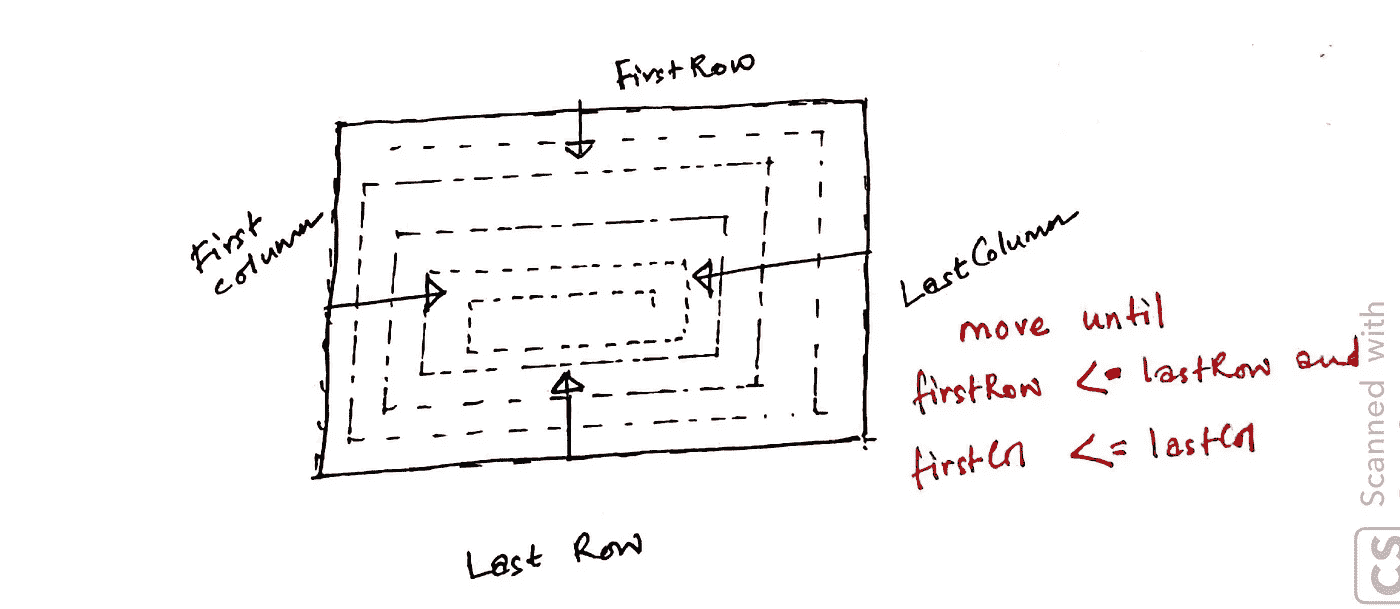 First Row
First
column
Last Column
move until
firstRow <= lastRow and
firstCol <= lastCol
Last Row
Scanned with
CS